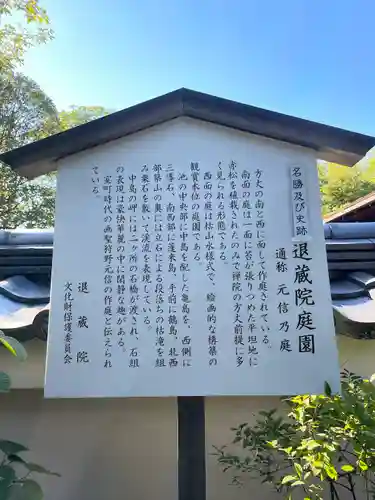 名勝及び史跡
退蔵院庭園
通称 元信乃庭
方丈の南と西に面して作庭されている。
南面の庭は一面に苔が張りつめた平坦地に
赤松を植栽されたのみで禅院の方丈前提に多
く見られる形態である。
西面の庭は枯山水様式で、絵画的な構築の
観賞本位の庭園である。
池の中央部に中島を配した亀島を、西側に
三尊石、南西部に蓬来島、手前に鶴島、北西
部築山の奥には立石による段落ちの枯滝を組
み栗石を敷いて渓流を表現している。
中島の岬には二ケ所の石橋が渡され、石組
の表現は豪快華麗の中に閑静な趣がある。
室町時代の画聖狩野元信の作庭と伝えられ
ている。
退蔵院
文化財保護委員会